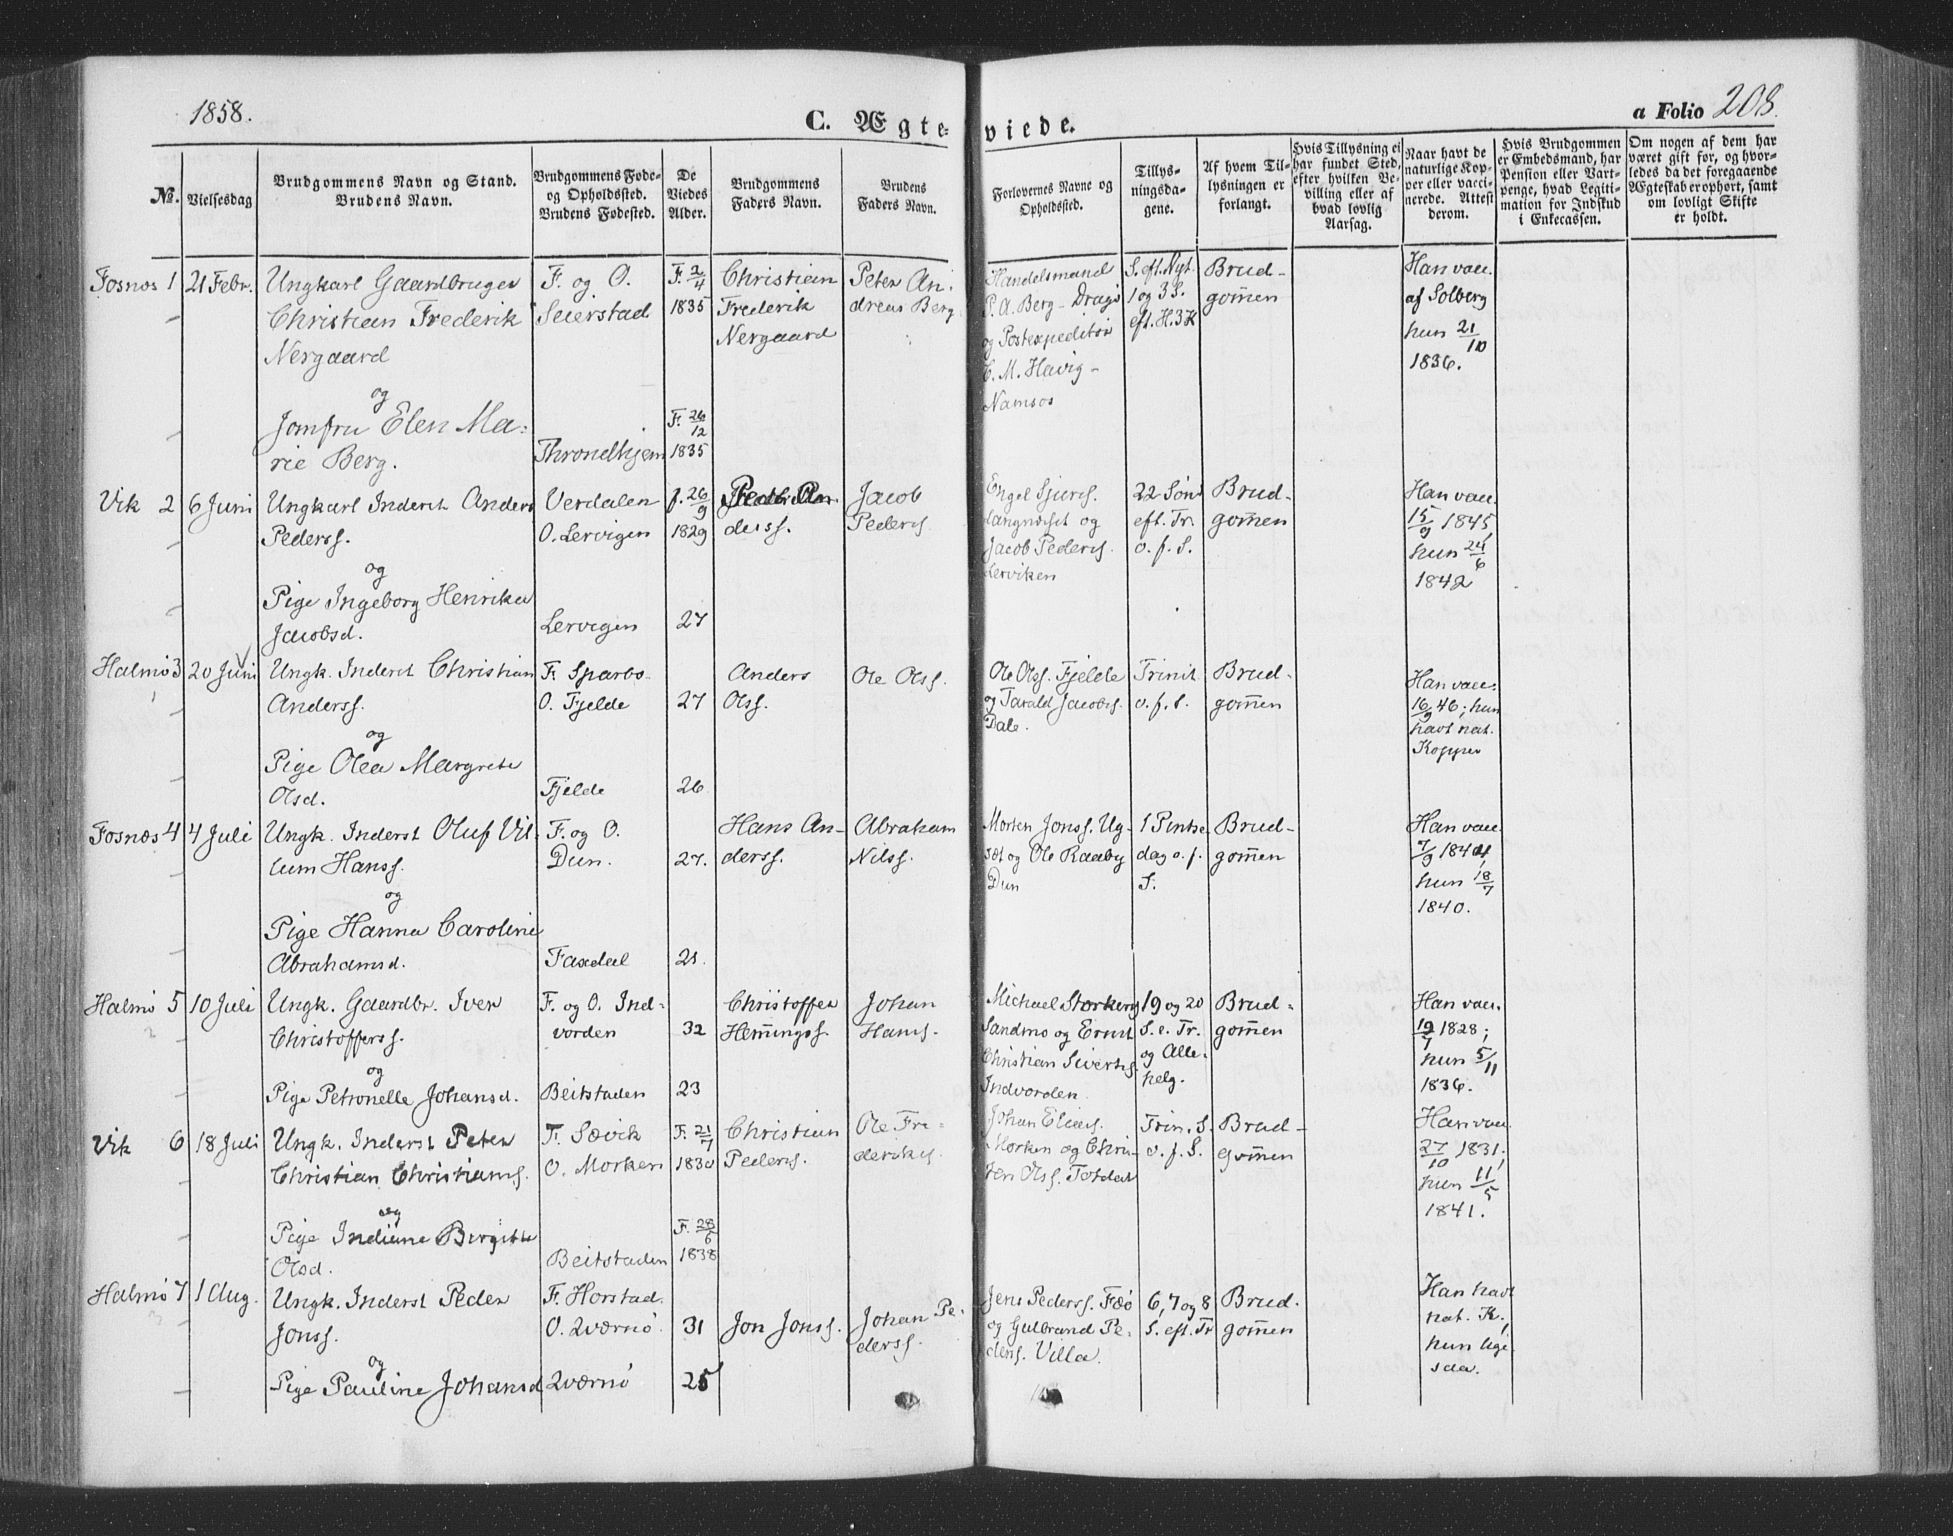 1858.
C. Ægte-
viede.
a Folio 208.
No.
Vielsesdag
Brudgommens Navn og Stand.
Brudens Navn.
Brudgommens Føde-
og Opholdssted.
Brudens Fødested.
De
Viedes
Alder.
Brudgommens
Faders Navn.
Brudens
Faders Navn.
Forlovernes Navne og
Opholdssted.
Tillys-
ningsda-
gene.
Af hvem Til-
lysningen er
forlangt.
Hvis Tillysning ei
har fundet Sted,
efter hvilken Be-
villing eller af
hvad lovlig
Aarsag.
Naar havt de
naturlige Kop-
per eller vacci-
nerede. Attest
derom.
Hvis Brudgommen
er Embedsmand, har
Pension eller Vart-
penge, hvad Legiti-
mation for Indskud
i Enkecassen.
Om nogen af dem har
været gift før, og hvor-
ledes da det foregaaende
Ægteskab er ophørt, samt
om lovligt Skifte
er holdt.
Fosnæs 1
21 Febr.
Ungkarl Gaardbruger
Christian Frederik
Nergaard
og
Jomfru Elen Ma-
rie Berg.
F. og O.
Seierstad
Throndhjem
F. 2/4
1835
F. 26/12
1835
Christian
Frederik
Nergaard
Peter An-
dreas Berg
Handelsmand
P. A. Berg - Dragø
og Postexpeditør
C. M. Havig -
Namsos
S. eft. Nyt.
1 og 3 S.
eft. H. 3 K
Brud-
gom̅en
Han vacc.
af Solberg
hun 21/10
1836.
Vik 2
6 Juni
Ungkarl Inderst Anders
Pederss.
og
Pige Ingeborg Henrikea
Jacobsd.
Verdalen
O. Lervigen
Lervigen
f. 26/9
1829
27
Peder An-
derss.
Jacob
Peders.
Engel Sjurs.
Langnæset og
Jacob Peders.
Lerviken
22 Sønd
eft. Tr.
o. f. S.
Brud-
gom̅en
Han vacc.
15/9 1845,
hun 24/6
1842
Halmø 3
20 Juni
Ungk. Inderst Christian
Anderss.
og
Pige Olea Margrete
Olsd.
F. Sparbo
O. Fjelde
Fjelde
27
26
Anders
Olss.
Ole Olss.
Ole Olss. Fjelde
og Tarald Jacobs.
Dale.
Trinit
o. f. S.
Brud-
gom̅en
Han vacc.
16/9 46; hun
havt nat.
Kopper
Fosnæs 4
4 Juli
Ungk. Inderst Oluf Vil-
lum Hanss.
og
Pige Hanna Caroline
Abrahamsd.
F. og O.
Dun.
Faxdal
27.
21.
Hans An-
derss.
Abraham
Nilss.
Morten Jonss. Ug-
sæt og Ole Raaby
Dun
1 Pintse-
dag o. f.
S.
Brud-
gom̅en
Han vacc.
7/9 1844,
hun 18/7
1840.
Halmø 5
10 Juli
Ungk. Gaardbr. Iver
Christofferss.
og
Pige Petronelle Johansd.
F. og O. Ind-
vorden
Beitstaden
32
23
Christoffer
Hem̅ingss.
Johan
Hans.
Michael Storkerss.
Sandmo og Ernst
Christian Siverts.
Indvorden.
19 og 20
S. e. Tr.
og Alle-
helg.
Brud-
gom̅en
Han vacc.
19/7 1828;
hun 5/11
1836.
Vik 6
18 Juli
Ungk. Inderst Peter
Christian Christians.
og
Pige Indiane Birgitte
Olsd.
F. Sævik
O. Morken
Beitstaden
F. 21/7
1830
F. 28/6
1838
Christian
Peders.
Ole Fre-
deriks.
Johan Elias.
Morken og Chris-
ten Olss. Totdal
Trin. S.
o. f. S.
Brud-
gom̅en
Han vacc.
27/10 1831;
hun 11/5
1841.
Halmø 7
1 Aug.
Ungk. Inderst Peder
Jonss.
og
Pige Pauline Johansd
F. Horstad.
O. Qværnø
Qværnø
31
25
Jon Jonss.
Johan Pe-
derss.
Jens Pederss. Fæø
og Gulbrand Pe-
ders. Villa.
6, 7 og 8
S. eft. Tr
Brud-
gom̅en
Han havt
nat. K.,
hun lige-
saa.